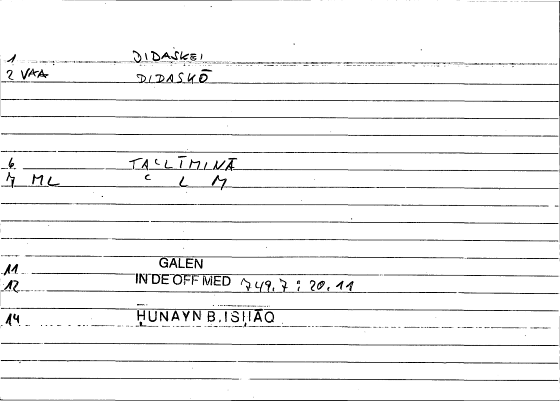 1 DIDASKEI
2 VAA DIDASKŌ
6 TAʿLĪMINĀ
7 ML ʿ L M
11 GALEN
12 IN DE OFF MED 749.7 : 20.11
14 ḤUNAYN B. ISḤĀQ